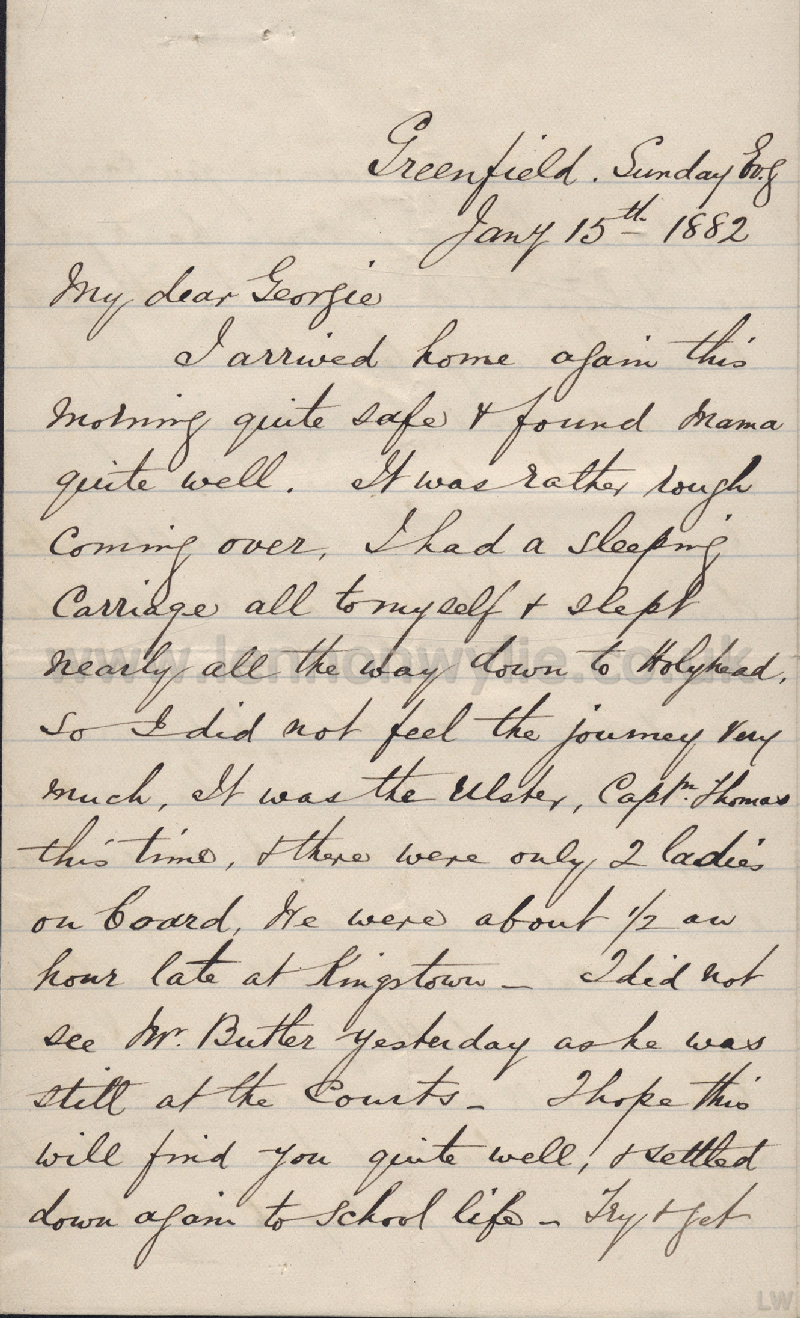 Greenfield. Sunday Evg
Jany 15th 1882
My dear Georgie
I arrived home again this
morning quite safe & found Mama
quite well. It was rather rough
coming over, I had a sleeping
carriage all to myself & slept
nearly all the way down to Holyhead,
www.lennonwylie.co.uk
so I did not feel the journey very
much, It was the Ulster, Captn. Thomas
this time, & there were only 2 ladies
on board, We were about 1/2 an
hour late at Kingstown - I did not
see Mr. Butler yesterday as he was
still at the Courts - I hope this
will find you quite well, & settled
down again to school life - Try & get
LW